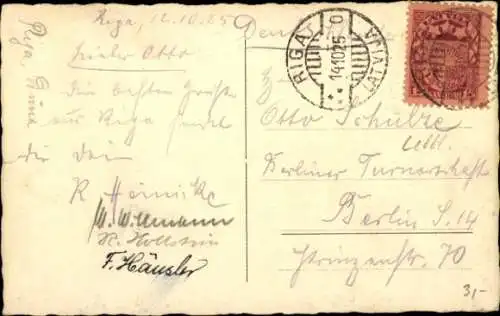 Riga, 12.10.25
Lieber Otto
Die besten Grüße
aus Riga sendet
dir dein
R Heinicke
W. Willmann
H. Hollstein
F. Häusler
Riga,
RIGA
14 10 25
LATVIJA
Otto Schultze
Berliner Turnerschaft
Berlin S. 14
Prinzenstr. 70
31,-